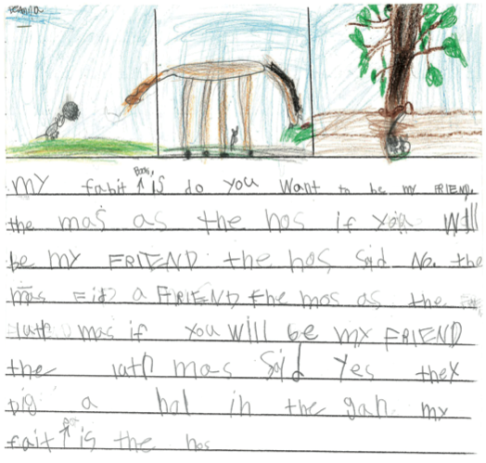 my fabit ↑ Book, is do you want to be my FRIEND.
the mas as the hos if you will
be my FRIEND the hos said No. the
mas a FRIEND the mos as the
mas if you will be my FRIEND
the latl mas said Yes they
Dig a hol in the gah my
fait ↑ is the hos